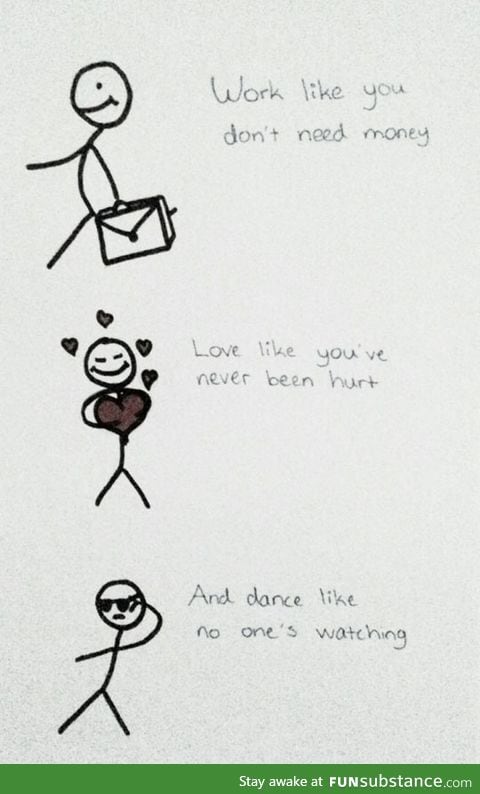 Work like you
don't need money
Love like you've
never been hurt
And dance like
no one's watching
Stay awake at FUNsubstance.com